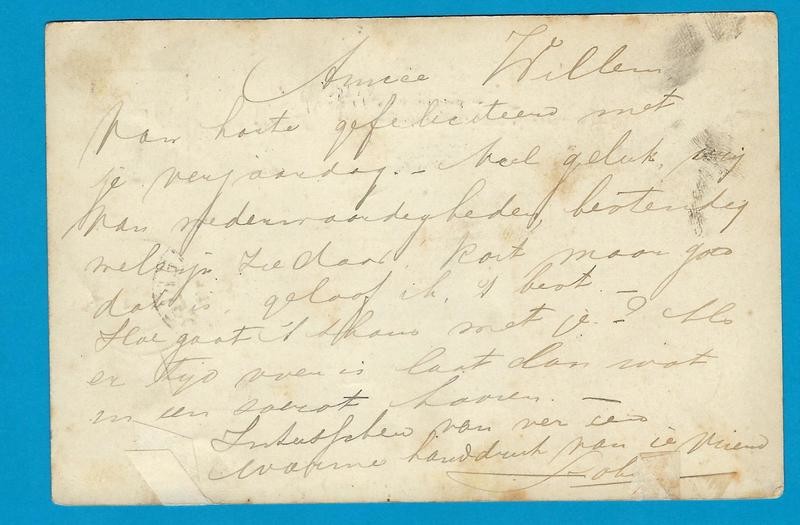 Amice Willem
Van harte gefeliciteerd met
je verjaardag. – Veel geluk, vrij
van wederwaardigheden, bestendig
welzijn. Ziedaar, kort maar goed
dat is, geloof ik, 't best. –
Hoe gaat 't thans met je? – Als
er tijd voor is laat dan wat
in een sooot hooren.
Intusschen van ver een
warme handdruk van je vriend
Rob